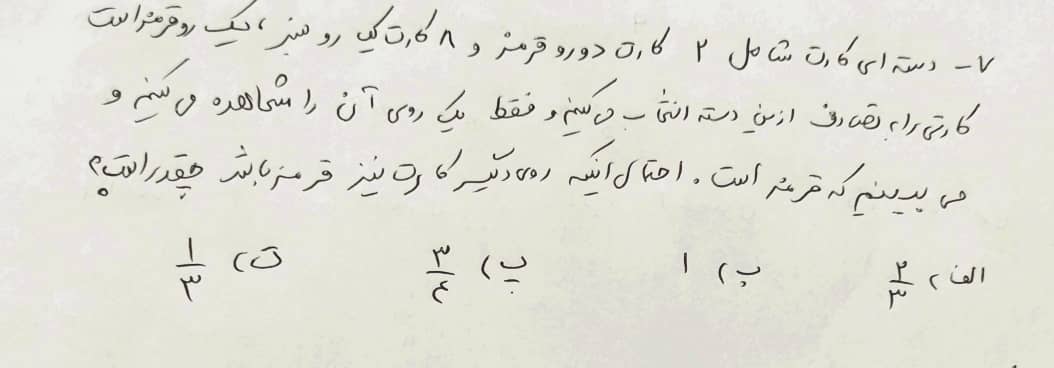 ۷- دسته ای کارت شامل ۲ کارت دورو قرمز و ۸ کارت یک رو سبز، یک رو قرمز است
کارتی را به تصادف از این دسته انتخاب می کنیم و فقط یک روی آن را مشاهده می کنیم و
می بینیم که قرمز است. احتمال اینکه روی دیگر کارت نیز قرمز باشد چقدر است؟
الف) ۲/۳ ب) ۱ پ) ۳/۴ ت) ۱/۳